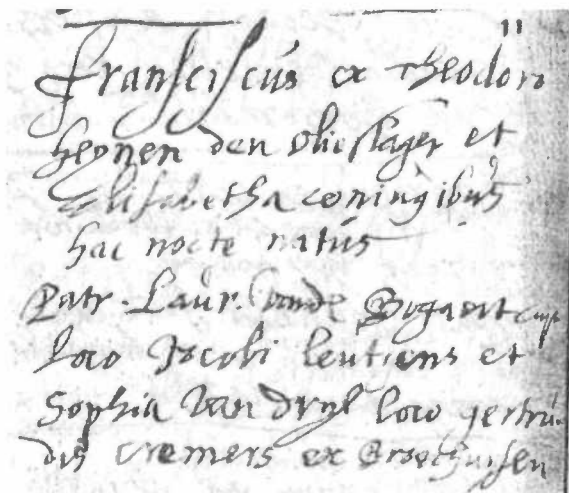 11
Franciscus ex Theodoro
heynen den olieslager et
Elisabetha coningibus
hac nocte natus
Patr. Laur. vande Bogaert
loco Jacobi leutiens et
Sophia van dryl loco gertru-
dis cremers ex Broechuysen